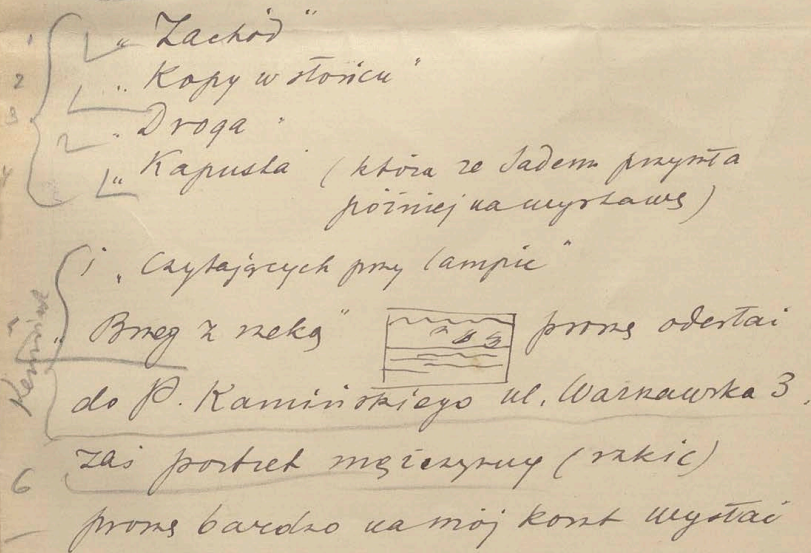 1 „Zachód"
2 „Kopy w słońcu"
3 „Droga"
4 „Kapusta (która ze Sadem przyszła
później na wystawę)
i „Czytających przy lampie"
„Brzeg z rzeką" proszę odesłać
do P. Kamińskiego ul. Warszawska 3.
zaś portret mężczyzny (szkic)
6
proszę bardzo na mój koszt wysłać